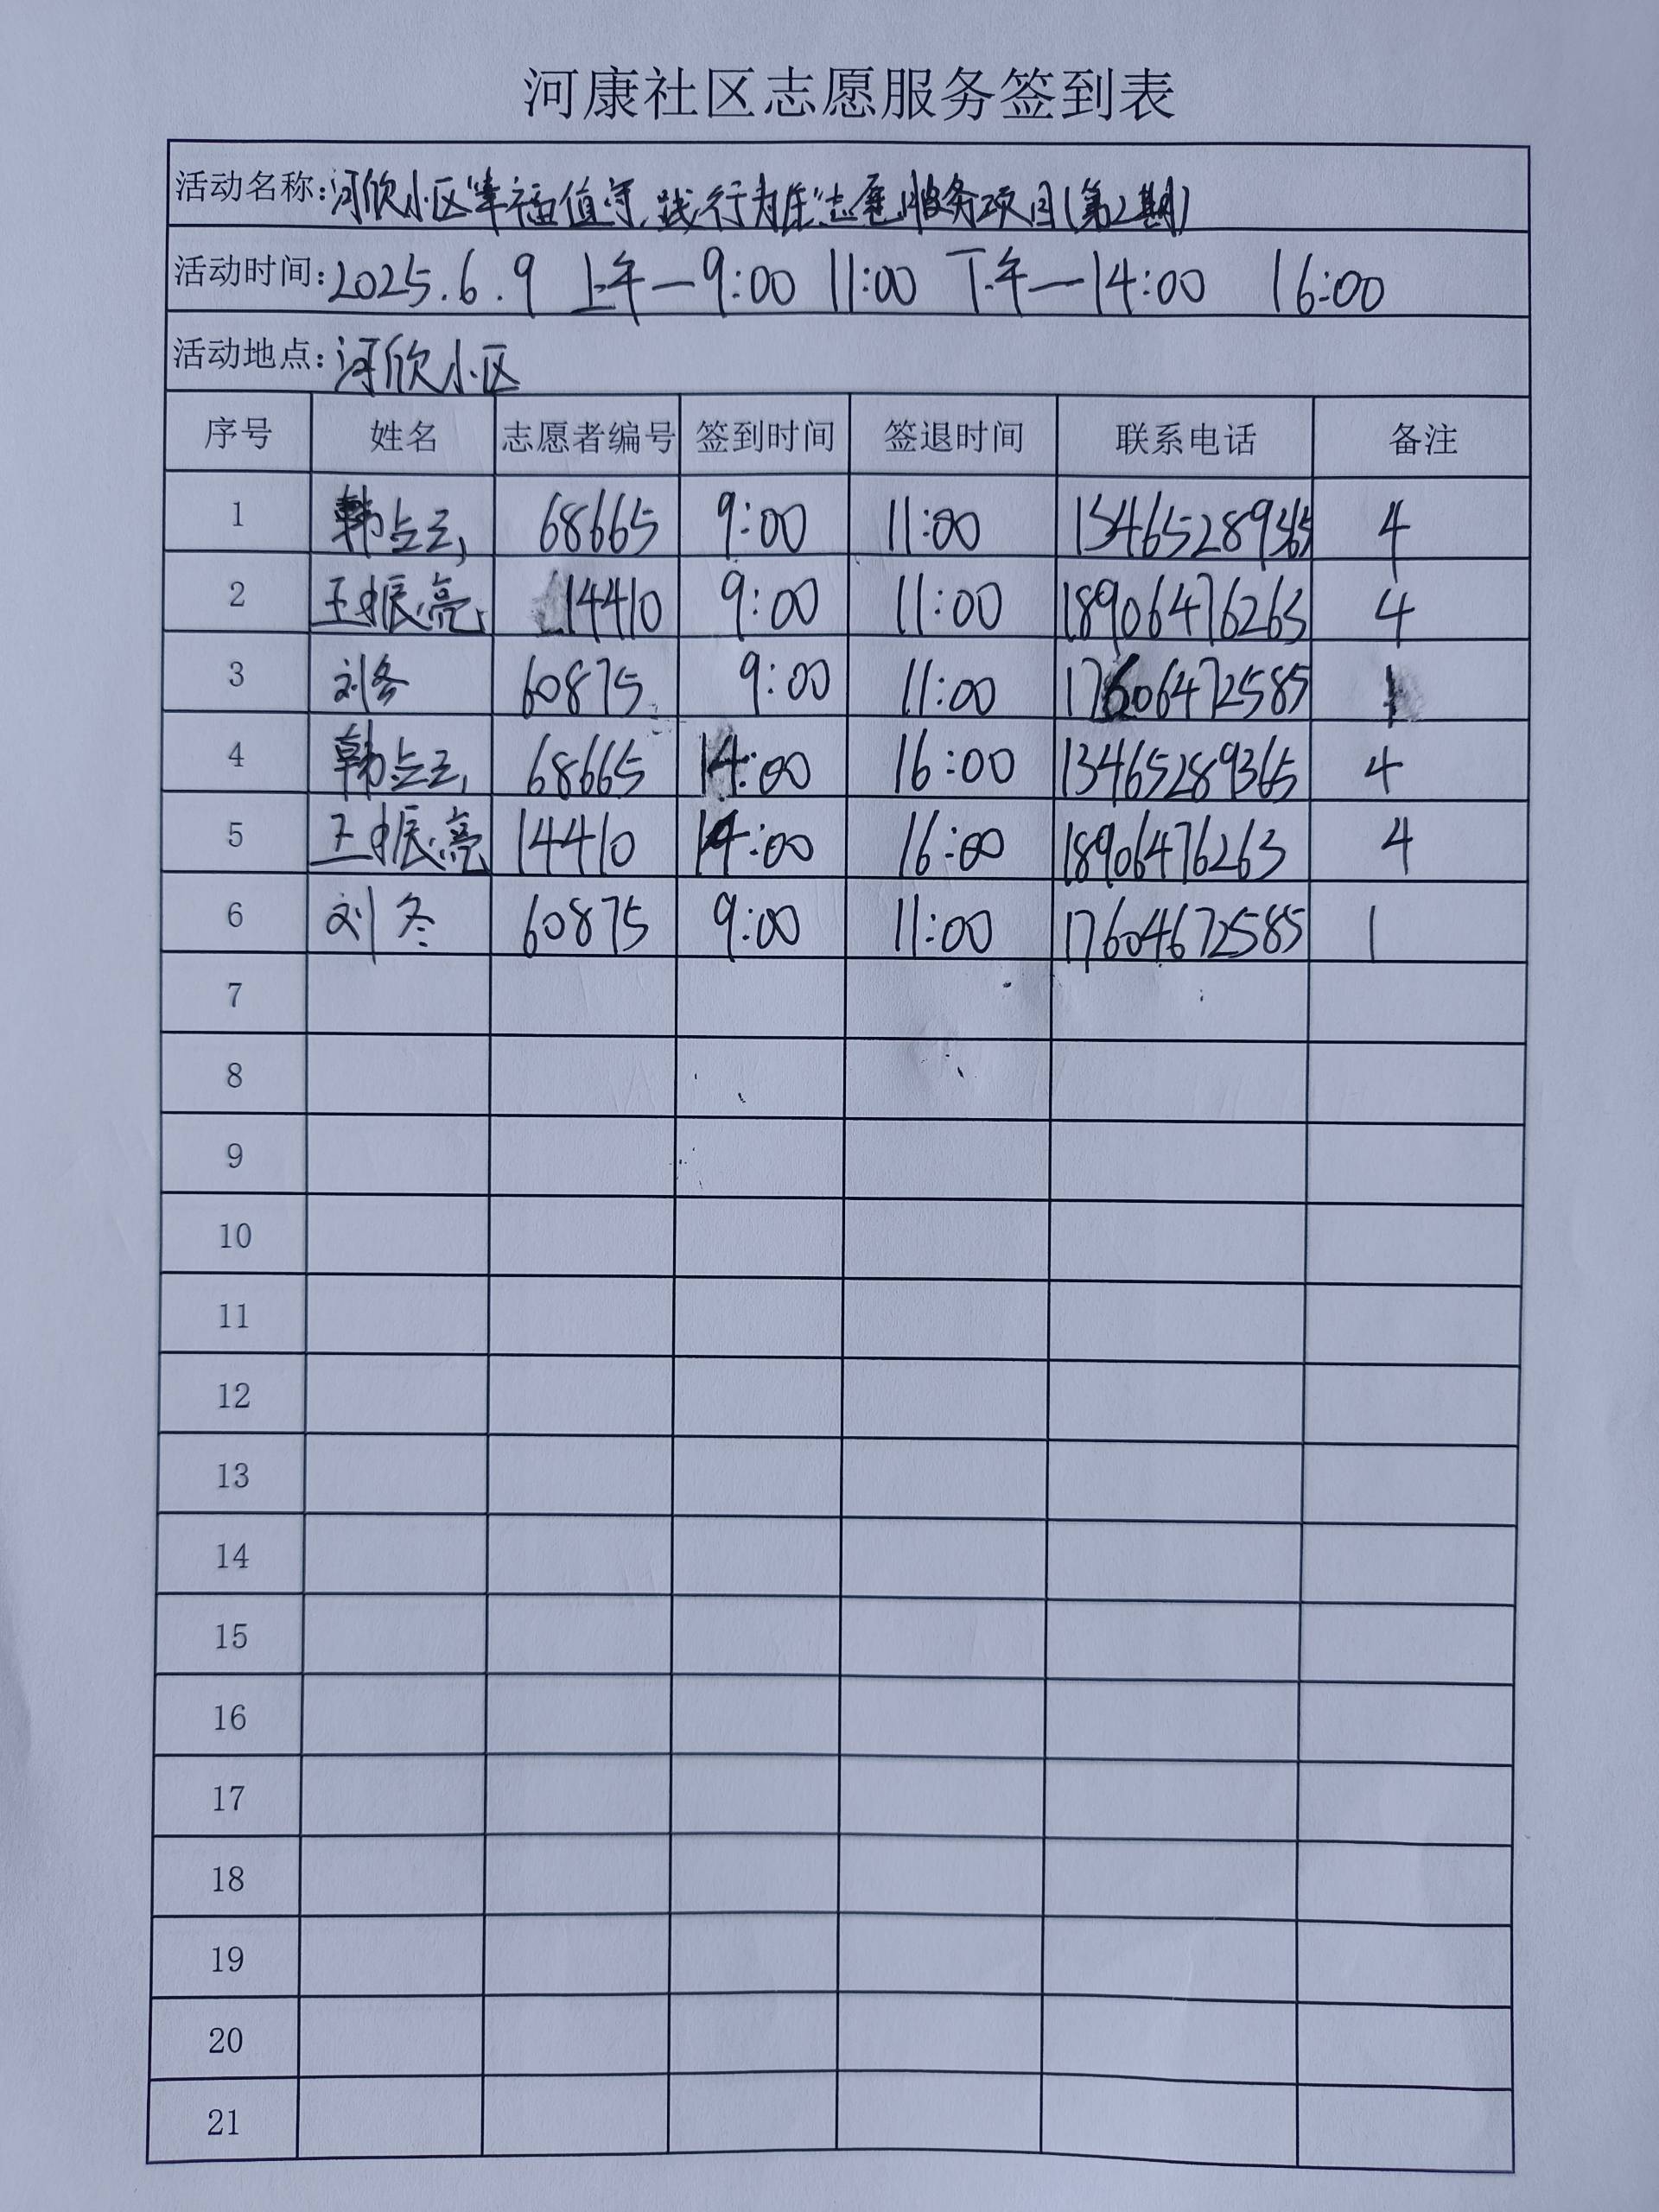 河康社区志愿服务签到表
活动名称:河欣小区幸福值守,践行为民志愿服务项目(第2期)
活动时间:2025.6.9 上午—9:00 11:00 下午—14:00 16:00
活动地点:河欣小区
序号 姓名 志愿者编号 签到时间 签退时间 联系电话 备注
1 韩 68665 9:00 11:00 13465289365 4
2 王振亮 14410 9:00 11:00 18906476263 4
3 刘冬 60875 9:00 11:00 17606472585 1
4 韩 68665 14:00 16:00 13465289365 4
5 王振亮 14410 14:00 16:00 18906476263 4
6 刘冬 60875 9:00 11:00 17604672585 1
7
8
9
10
11
12
13
14
15
16
17
18
19
20
21